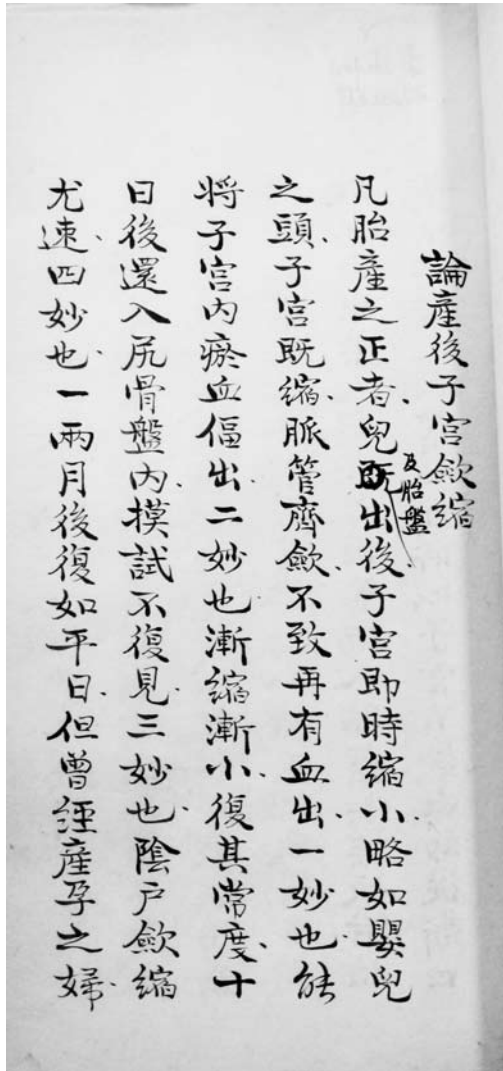 論產後子宮歛縮
凡胎產之正者、兒及胎盤出後、子宮即時縮小、略如嬰兒
之頭、子宮既縮、脈管齊歛、不致再有血出、一妙也、能
將子宮內瘀血偪出、二妙也、漸縮漸小、復其常度、十
日後還入尻骨盤內、摸試不復見、三妙也、陰戶歛縮
尤速、四妙也、一兩月後復如平日、但曾經產孕之婦、